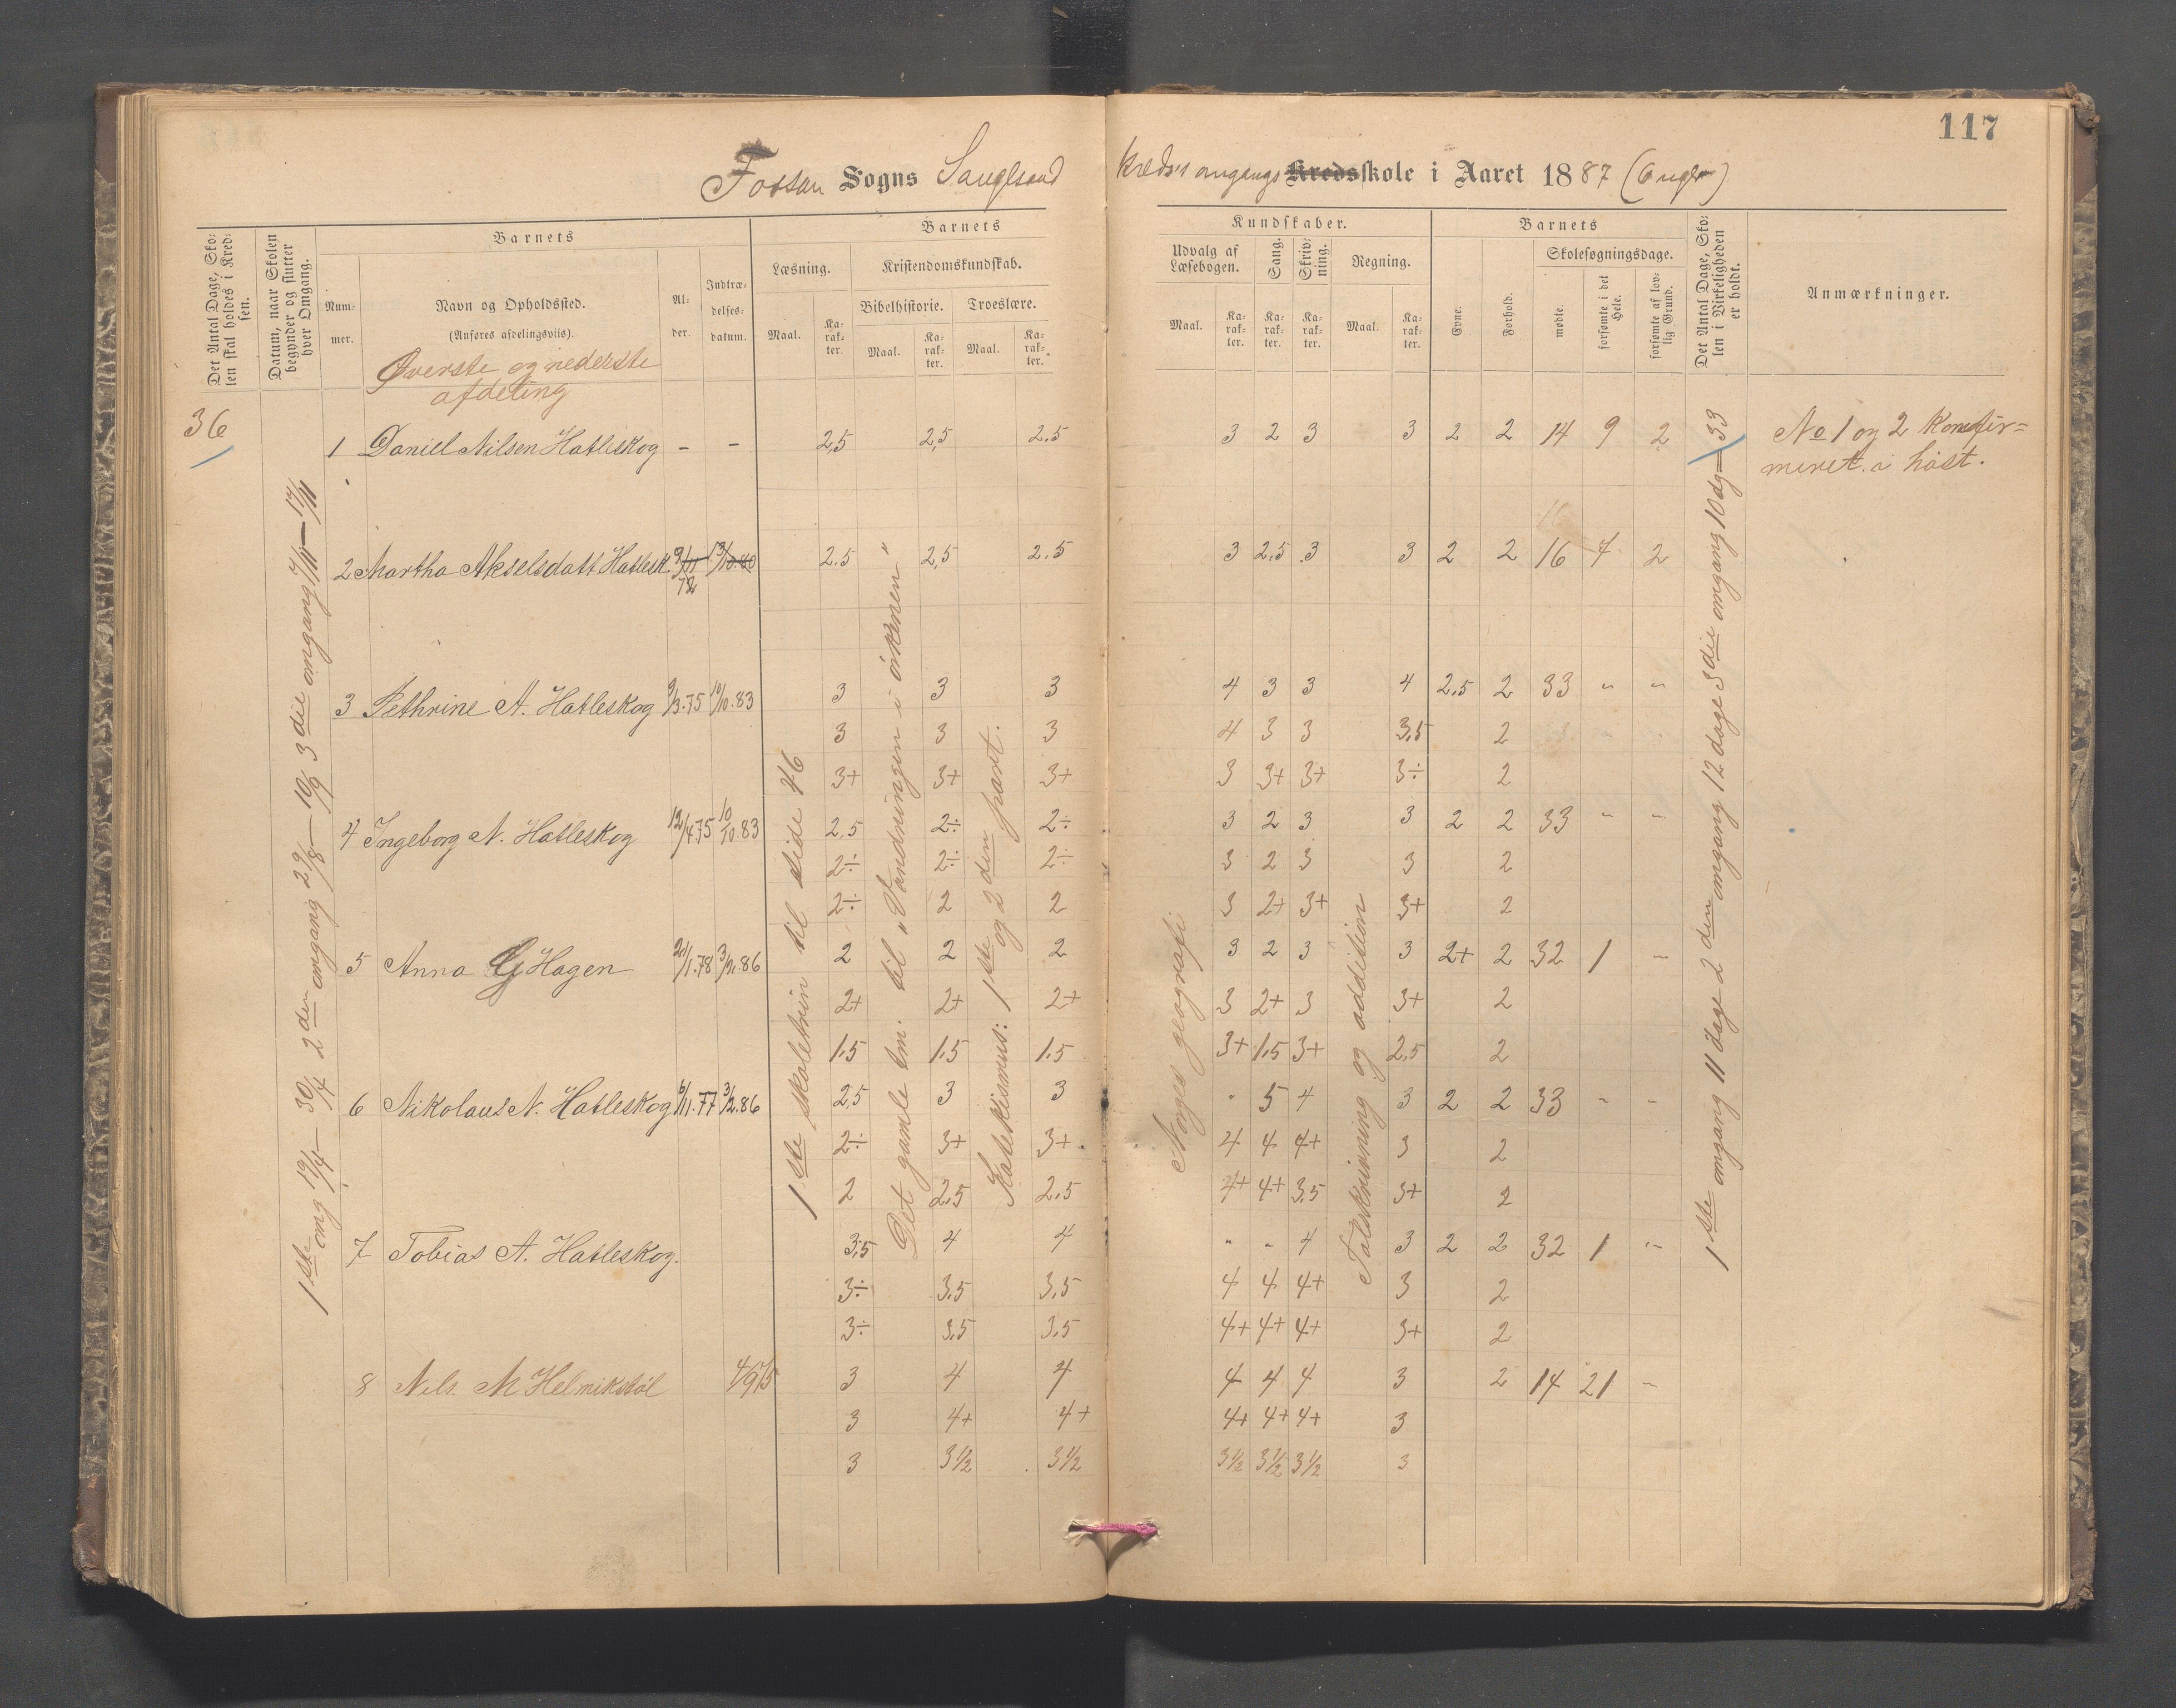 117
Fossan Sogns Sauglsand Kreds's omgangs Kredsskole i Aaret 1887
Det Antal Dage, Skolen skal holdes i Kredsen.
Datum, naar Skolen begynder og slutter hver Omgang.
Barnets
Nummer.
Navn og Opholdssted.
(Anføres afdelingsviis).
Alder.
Indtrædelsesdatum.
Barnets
Kundskaber.
Læsning.
Maal.
Karakter.
Kristendomskundskab.
Bibelhistorie.
Maal.
Karakter.
Troeslære.
Maal.
Karakter.
Udvalg af Læsebogen.
Maal.
Karakter.
Sang.
Karakter.
Skrivning.
Karakter.
Regning.
Maal.
Karakter.
Barnets
Evne.
Forhold.
Skolesøgningsdage.
mødte.
forsømte i det Hele.
forsømte af lovlig Grund.
Det Antal Dage, Skolen i Virkeligheden er holdt.
Anmærkninger.
Øverste og nederste
afdeling
36
1ste omg 19/4 — 30/4 2den omgang 29/8 — 10/9 3die omgang 7/11 — 17/11
1ste skoletrin til side 46
Det gamle tm. til „Vandringen i örkenen"
Katekismus: 1ste og 2den part.
Norges geografi
Talskrivning og addition
1ste omgang 11 dage 2den omgang 12 dage 3die omgang 10 dg — 33
No 1 og 2 konfir=
meret i høst.
1 Daniel Nilsen Hatleskog - - 2,5 2,5 2.5 3 2 3 3 2 2 14 9 2
2 Martha Akselsdatt Hatlesk. 9/11 72 13/10.80 2.5 2,5 2.5 3 2.5 3 3 2 2 16 7 2
3 Pethrine A. Hatleskog 9/3.75 10/10.83 3 3 3 4 3 3 4 2.5 2 33 " "
3 3 3 4 3 3 3,5 2
3+ 3+ 3+ 3 3+ 3+ 3÷ 2
4 Ingeborg N. Hatleskog 12/4.75 10/10.83 2,5 2÷ 2÷ 3 2 3 3 2 2 33 " "
2÷ 2÷ 2÷ 3 2 3 3 2
2÷ 2 2 3 2+ 3+ 3+ 2
5 Anna G Hagen 20/1.78 3/2.86 2 2 2 3 2 3 3 2+ 2 32 1 "
2+ 2+ 2+ 3 2+ 3 3+ 2
1,5 1,5 1,5 3+ 1,5 3+ 2,5 2
6 Nikolaus N. Hatleskog 6/11.77 3/2.86 2,5 3 3 " 5 4 3 2 2 33 " "
2÷ 3+ 3+ 4 4 4+ 3 2
2 2,5 2,5 4+ 4+ 3,5 3+ 2
7 Tobias A. Hatleskog. 3,5 4 4 " " 4 3 2 2 32 1 "
3÷ 3,5 3,5 4 4 4+ 3 2
3÷ 3,5 3,5 4+ 4+ 4+ 3+ 2
8 Nils. M Helmikstøl 4/9 75 3 4 4 4 4 4 3 2 14 21 "
3 4+ 4+ 4+ 4+ 4+ 3
3 3½ 3½ 3½ 3½ 3½ 3